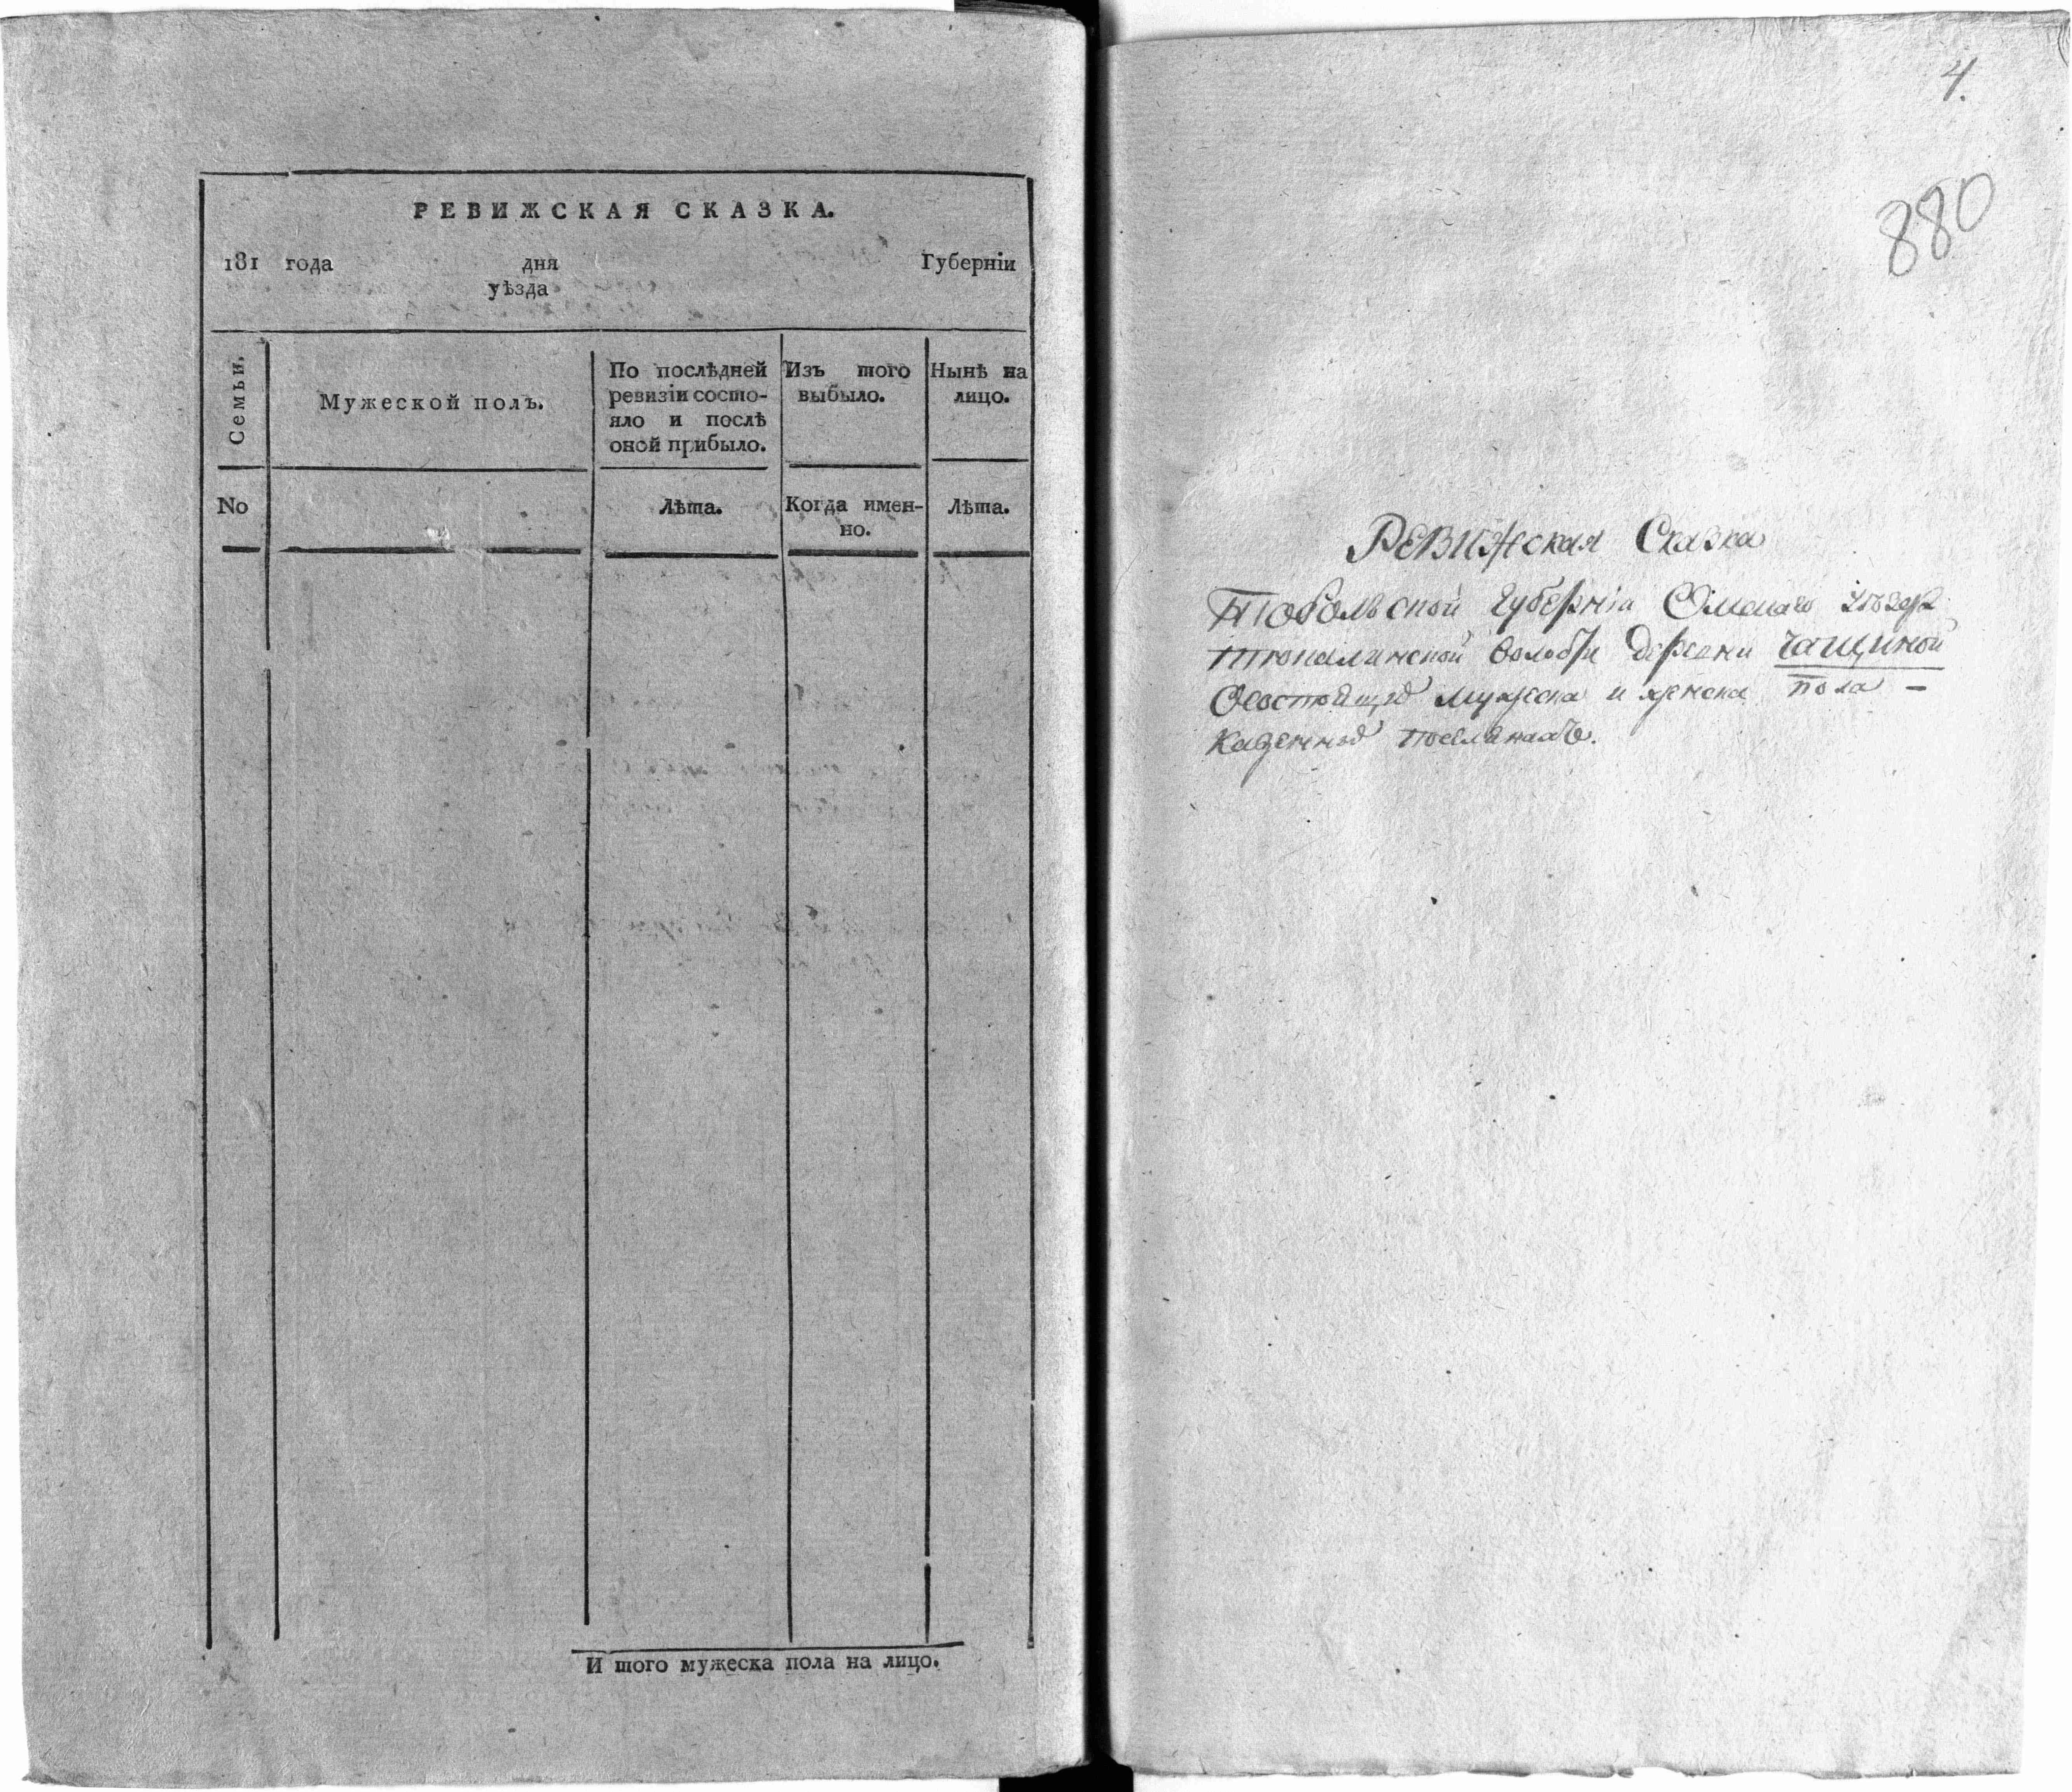 РЕВИЖСКАЯ СКАЗКА.
181 года дня Губерніи
уѣзда
Семьи.
Мужеской полъ.
По послѣдней
ревизіи состо-
яло и послѣ
оной прибыло.
Изъ того
выбыло.
Нынѣ на
лицо.
No
Лѣта.
Когда имен-
но.
Лѣта.
И того мужеска пола на лицо.
4.
880
Ревижская Сказка
Тобольской губерніи Омскаго уѣзда
Тюкалинской волости деревни Чащиной
Состоящъ мужеска и женска пола —
казенной поселянахъ.